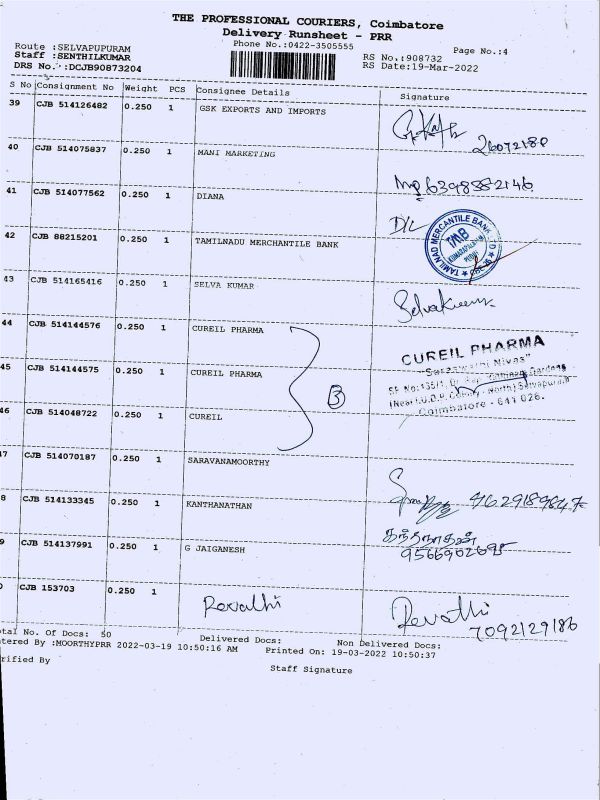 THE PROFESSIONAL COURIERS, Coimbatore
Delivery Runsheet - PRR
Phone No.:0422-3505555
Page No.:4
Route :SELVAPUPURAM
Staff :SENTHILKUMAR
DRS No. :DCJB90873204
RS No.:908732
RS Date:19-Mar-2022
S No Consignment No Weight PCS Consignee Details Signature
39 CJB 514126482 0.250 1 GSK EXPORTS AND IMPORTS
40 CJB 514075837 0.250 1 MANI MARKETING
41 CJB 514077562 0.250 1 DIANA
42 CJB 88215201 0.250 1 TAMILNADU MERCHANTILE BANK
TAMILNAD MERCANTILE BANK
TMB
43 CJB 514165416 0.250 1 SELVA KUMAR
Selvakumar
44 CJB 514144576 0.250 1 CUREIL PHARMA
45 CJB 514144575 0.250 1 CUREIL PHARMA
46 CJB 514048722 0.250 1 CUREIL
3
CUREIL PHARMA
"Saraswathi Nivas"
Coimbatore - 641 026.
7 CJB 514070187 0.250 1 SARAVANAMOORTHY
8 CJB 514133345 0.250 1 KANTHANATHAN
கந்தநாதன்
9 CJB 514137991 0.250 1 G JAIGANESH
0 CJB 153703 0.250 1 Revathi Revathi
7092129186
otal No. Of Docs: 50 Delivered Docs: Non Delivered Docs:
tered By :MOORTHYPRR 2022-03-19 10:50:16 AM Printed On: 19-03-2022 10:50:37
rified By
Staff Signature